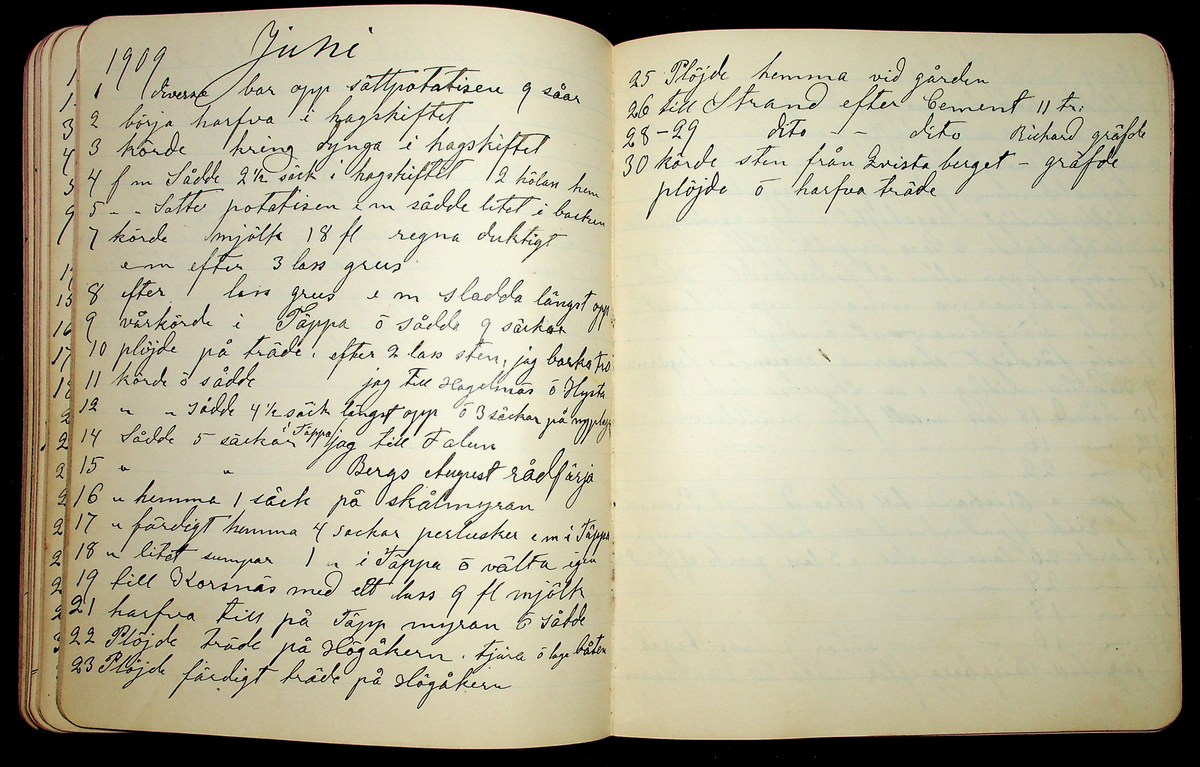 1909 Juni
1 diverse bar opp sättpotatisen 9 såar
2 börja harfva i hagskiftet
3 körde kring dynga i hagskiftet
4 f m Sådde 2½ säck i hagskiftet 12 hölass hem
5 " " Satte potatisen e m sådde litet i backen
7 körde mjölk 18 fl regna duktigt
e m efter 3 lass grus
8 efter lass grus e m sladda längst opp
9 vårkörde i Täppa ō sådde 9 säckar
10 plöjde på träde. efter 2 lass sten, jag barka
11 körde ō sådde jag till Hagelnäs ō Hysta
12 " " sådde 4½ säck längst opp ō 3 säckar på
14 Sådde 5 säckar i Täppa jag till Falun
15 " " Bergs August rådfärja
16 " hemma 1 säck på skålmyran
17 " färdigt hemma 4 säckar perlusker e m i Täppa
18 " litet sumpar 1 " i Täppa ō välta igen
19 till Korsnäs med ett lass 9 fl mjölk
21 harfva till på Täpp myran ō sådde
22 Plöjde träde på Högåkern. tjära ō laga båten
23 Plöjde färdigt träde på Högåkern
25 Plöjde hemma vid gården
26 till Strand efter Cement 11 tr:
28-29 dito -- dito Richard gräfde
30 körde sten från Qvista berget - gräfde
plöjde ō harfva träde